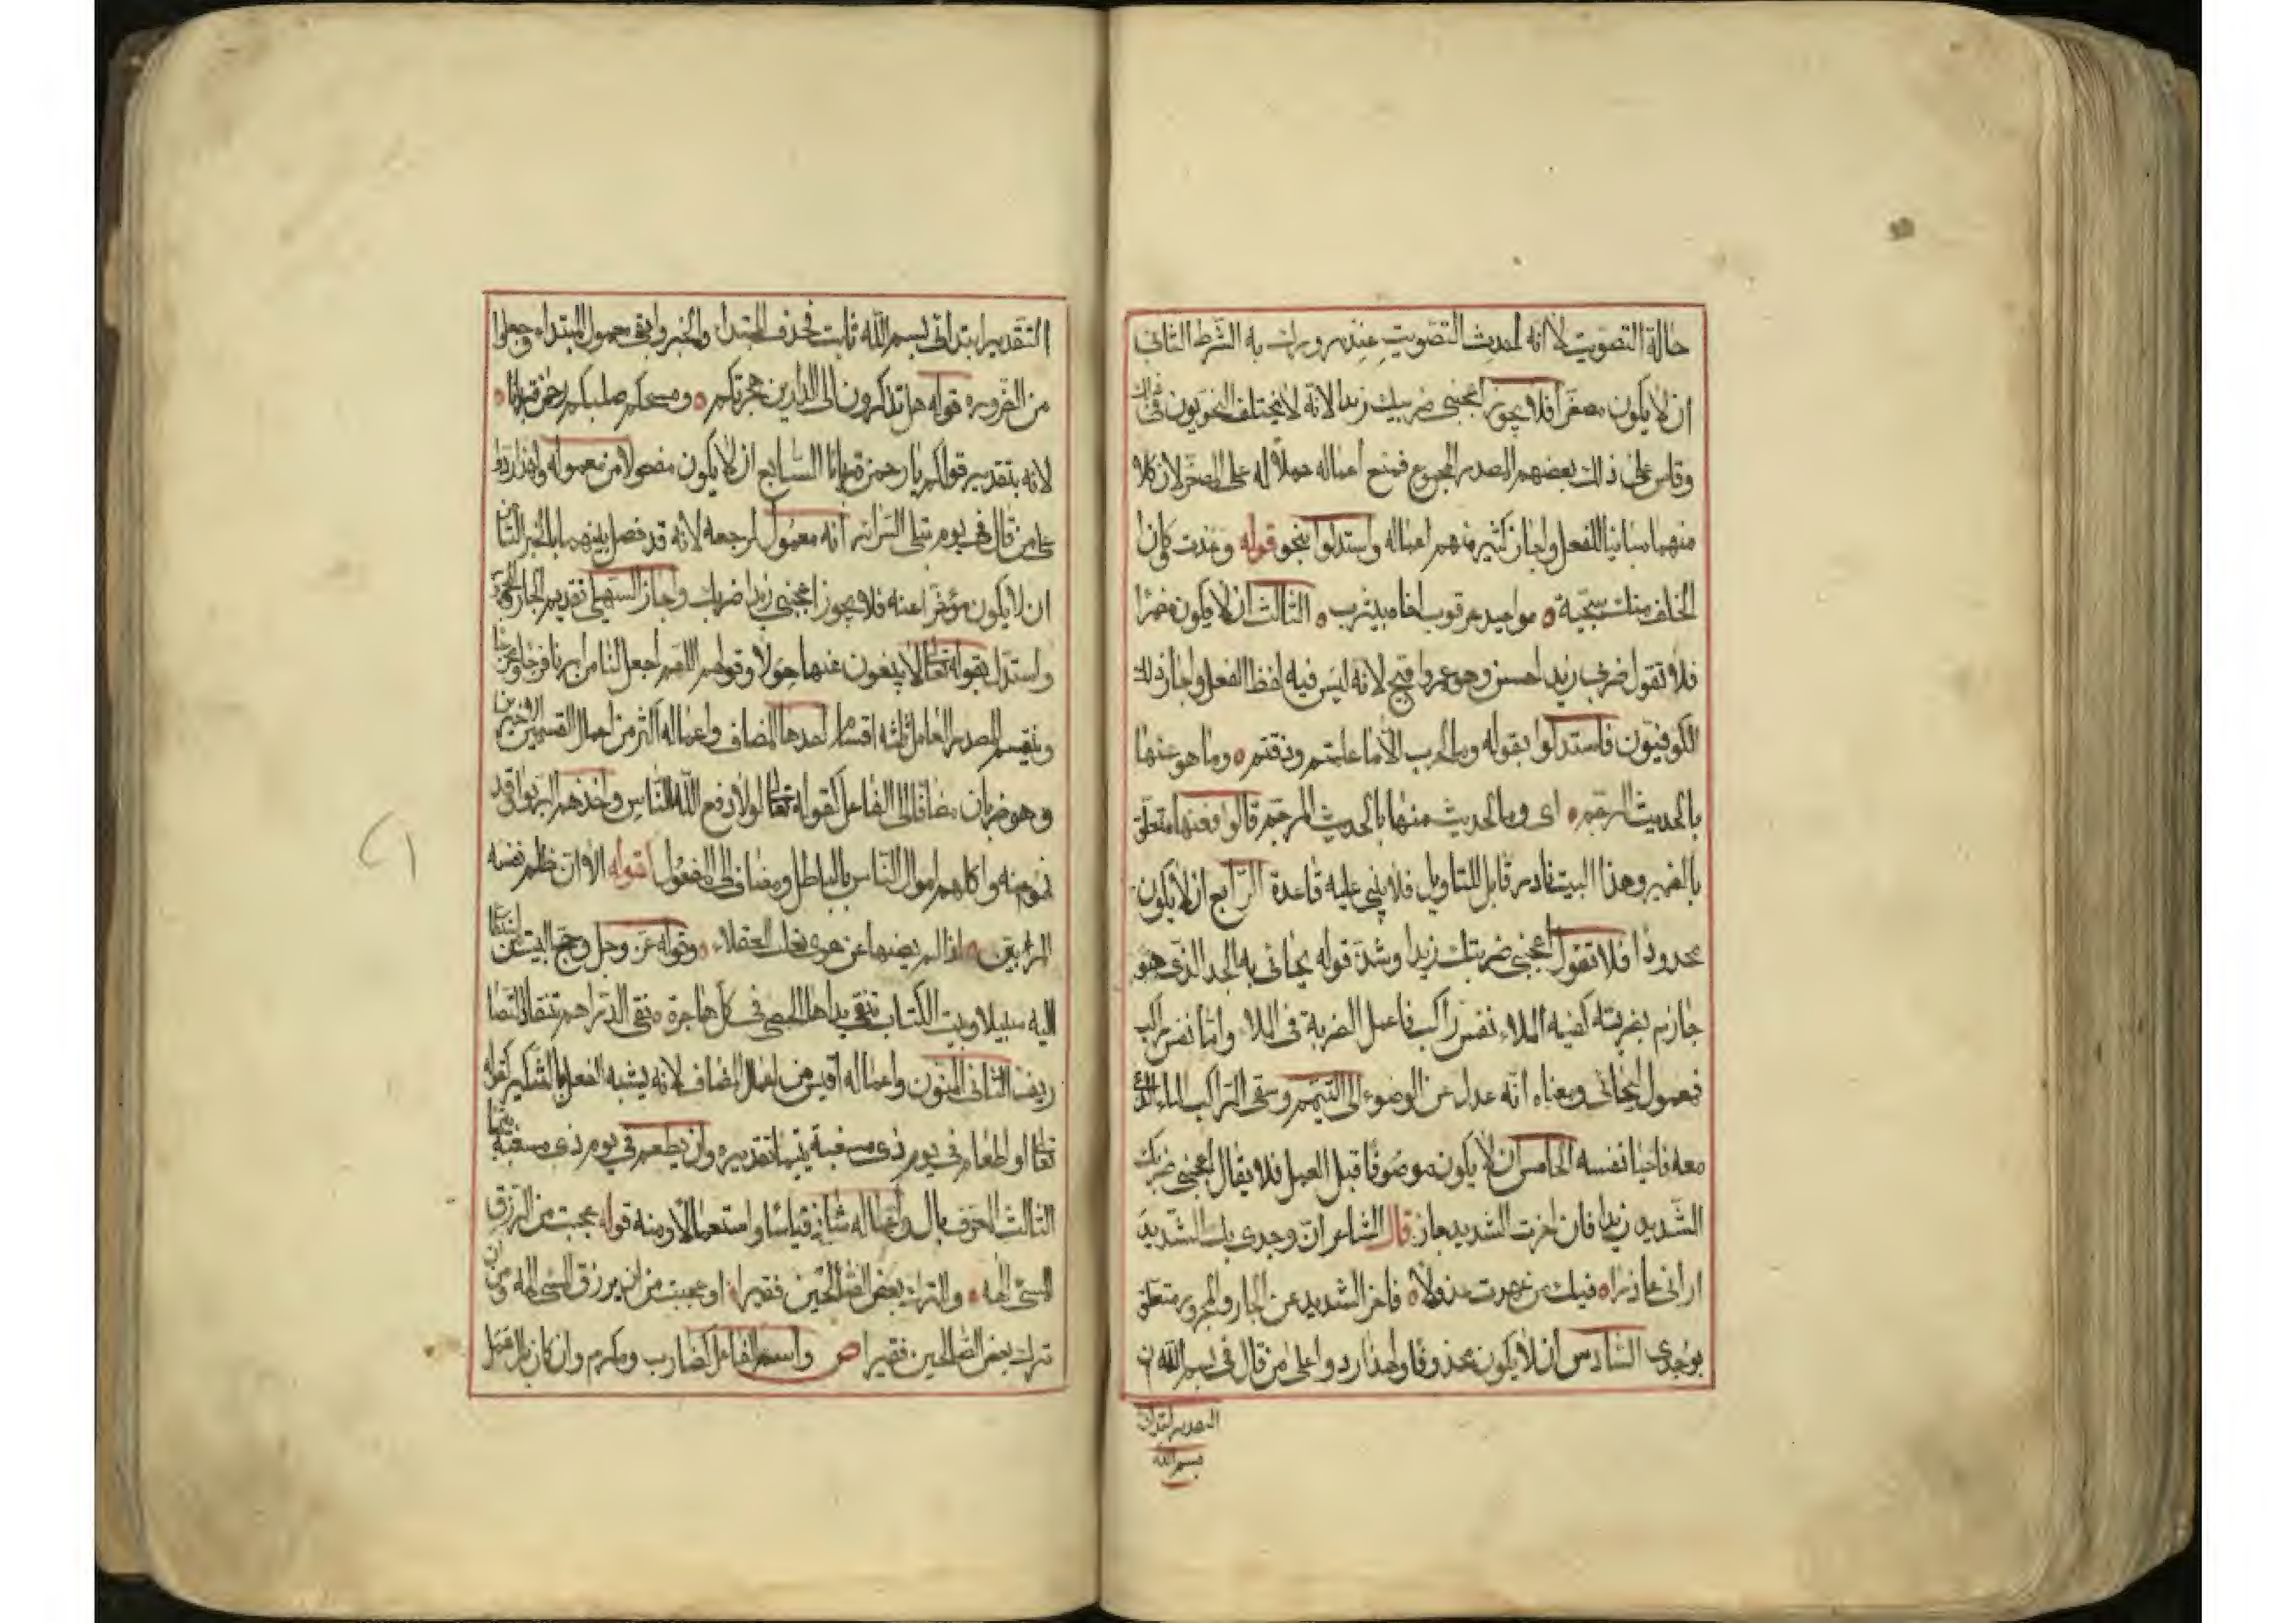 حالة التصويت لا انه احدث التصويت عند مرورك به الشرط الثاني
ان لا يكون مصغرا فلا يجوز اعجبني ضريبك زيدا لانه لا يختلف النحويون في ذلك
وقاس على ذلك بعضهم المصدر المجموع فمنع اعماله حملا له على المصغر لان كلا
منهما مباينا للفعل واجاز كثير منهم اعماله واستدلوا بنحو قوله وعدت وكان
الخلف منك سجية ه مواعيد عرقوب اخاه بيثرب ه الثالث ان لا يكون مضمرا
فلا تقول ضربي زيدا حسن وهو عمروا قبيح لانه ليس فيه لفظ الفعل واجاز ذلك
الكوفيون فاستدلوا بقوله وما الحرب الا ما علمتم وذقتم ه وما هو عنها
بالحديث المرجم ه اى وما الحديث عنها بالحديث المرجم قالوا فعنها متعلق
بالضمير وهذا البيت نادر قابل للتاويل فلا يبنى عليه قاعدة الرابع ان لا يكون
محدودا فلا تقول اعجبني ضربتك زيدا وشذ قوله يحائى به الجلد الذى هو
حازم بضربة كفيه الملاء نفس راكب فاعمل الضربة فى الملاء واما نفس راكب
فمعمول ليحائى ومعناه انه عدل عن الوضوء الى التيمم وسقى الراكب الماء الذى
معه فاحيا نفسه الخامس ان لا يكون موصوفا قبل العمل فلا يقال اعجبنى ضربك
الشديد زيدا فان اخرت الشديد جاز قال الشاعر ان وجدى بك الشديد
ارانى عاذرا ه فيك من عهدت عذولا ه فاخر الشديد عن الجار والمجرور متعلق
بوجدى السادس ان لا يكون محذوفا ولهذا ردوا على من قال فى بسم الله ان
التقدير ابتدائى
بسم الله
التقدير ابتدائى بسم الله ثابت فحذف المبتدا والخبر وابقى معمول المبتداء وجعلوا
من الضروره قوله هل تذكرون الى الديرين هجرتكم ه ومسحكم صلبكم رحمن قربانا ه
لانه بتقدير قولكم يا رحمن قربانا السابع ان لا يكون مفصولا من معموله ولهذا ردوا
على من قال فى يوم تبلى السرائر انه معمول لرجعه لانه قد فصل بينهما بالخبر الثامن
ان لا يكون مؤخرا عنه فلا يجوز اعجبنى زيدا ضربك واجاز السهيلى تقديم الجار والمجرور
واستدل بقوله تعالى لا يبغون عنها حولا وقولهم اللهم اجعل لنا من امرنا فرجا ومخرجا
وينقسم المصدر العامل ثلثه اقسام احدها المضاف واعماله اكثر من اعمال القسمين الاخرين
وهو ضربان مضاف الى الفاعل كقوله تعالى لولا دفع الله الناس واخذهم الربوا وقد
نهوا عنه واكلهم اموال الناس بالباطل ومضاف الى المفعول كقوله الا ان ظلم نفسه
المرء بين ه اذا لم يصنها عن هوى يغلب العقلا ه وقوله عز وجل وحج البيت من استطاع
اليه سبيلا وبيت الكتاب تنفى يداها الحصى فى كل هاجرة ه نفى الدراهم تنقاد الصيا
ريف الثانى المنون واعماله اقيس من اعمال المضاف لانه يشبه الفعل بالتنكير كقوله
تعالى او اطعام فى يوم ذى مسغبة يتيما تقديره وان يطعم فى يوم ذى مسغبة يتيما
الثالث المعرف بال واعماله شاذ قياسا واستعمالا ومنه قوله عجبت من الرزق
المسئ الهه ه والترك بعض الصالحين فقيرا ه او عجبت من ان يرزق المسئ الهه ومن ان
ترك بعض الصالحين فقيرا ص واسم الفاعل كضارب ومكرم وان كان بال عمل